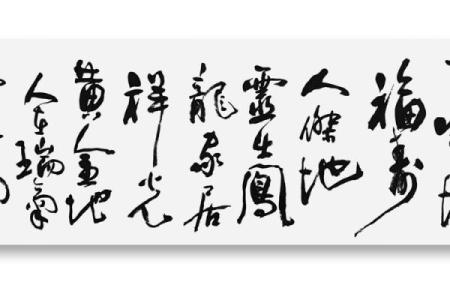 福寿
人傑地
靈生鳳
龍家居
祥光
黄金地
人在瑞氣